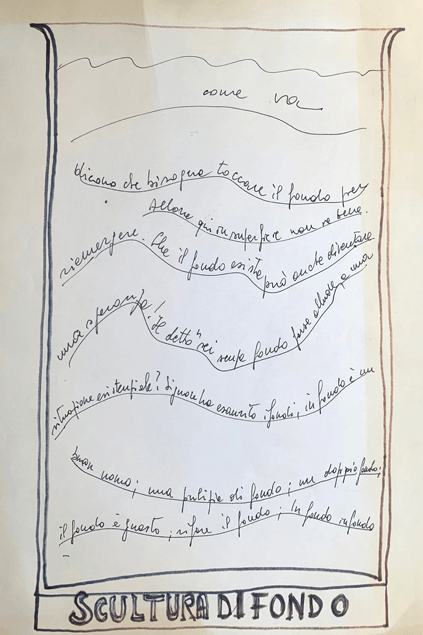 come va
dicono che bisogna toccare il fondo per
Allora qui in superficie non va bene.
riemergere. Che il fondo esista può anche diventare
una speranza! Il detto "sei senza fondo" forse allude a una
situazione esistenziale? Signori ha esaurito i fondi, in fondo è un
buon uomo; una pulizia di fondo; un doppio fondo;
il fondo è guasto; rifare il fondo; In fondo in fondo
SCULTURA DI FONDO